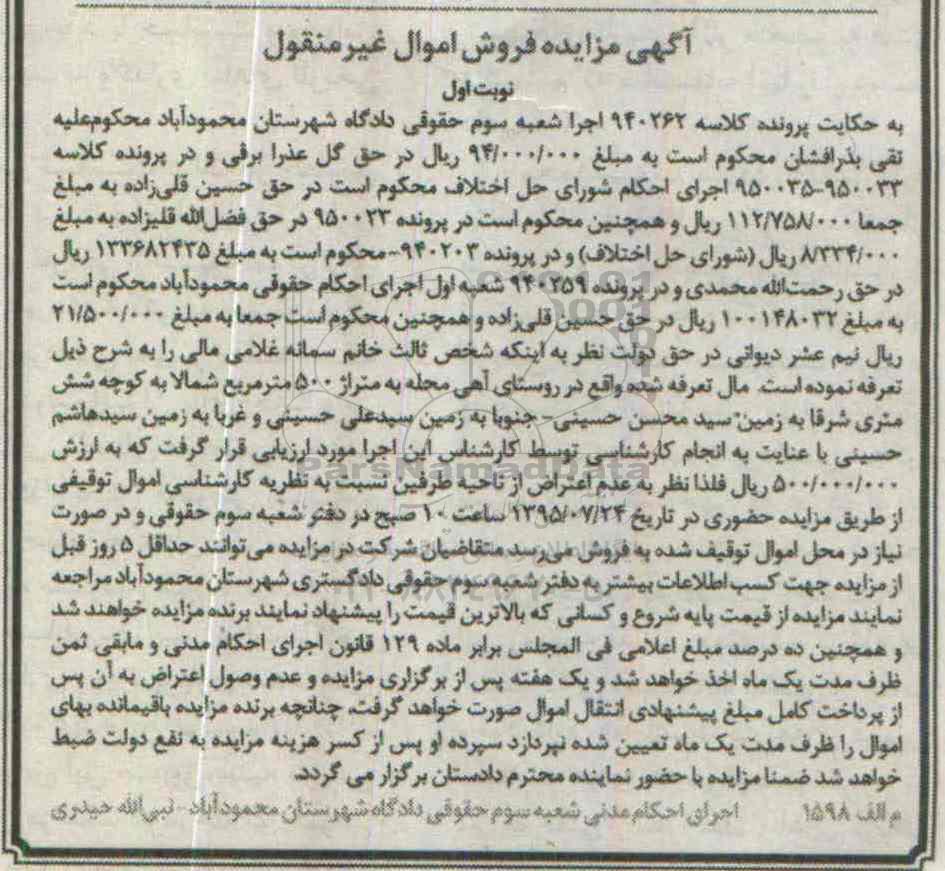 آگهی مزایده فروش اموال غیرمنقول
نوبت اول
به حکایت پرونده کلاسه ۹۴۰۲۶۲ اجرا شعبه سوم حقوقی دادگاه شهرستان محمودآباد محکوم‌علیه
تقی بذرافشان محکوم است به مبلغ ۹۴/۰۰۰/۰۰۰ ریال در حق گل عذرا برقی و در پرونده کلاسه
۹۵۰۰۳۳-۹۵۰۰۳۵ اجرای احکام شورای حل اختلاف محکوم است در حق حسین قلی‌زاده به مبلغ
جمعا ۱۱۲/۷۵۸/۰۰۰ ریال و همچنین محکوم است در پرونده ۹۵۰۰۲۳ در حق فضل‌الله قلیزاده به مبلغ
۸/۳۳۴/۰۰۰ ریال (شورای حل اختلاف) و در پرونده ۹۴۰۲۰۳-محکوم است به مبلغ ۱۳۳۶۸۲۴۳۵ ریال
در حق رحمت‌الله محمدی و در پرونده ۹۴۰۲۵۹ شعبه اول اجرای احکام حقوقی محمودآباد محکوم است
به مبلغ ۱۰۰۱۴۸۰۳۲ ریال در حق حسین قلی‌زاده و همچنین محکوم است جمعا به مبلغ ۲۱/۵۰۰/۰۰۰
ریال نیم عشر دیوانی در حق دولت نظر به اینکه شخص ثالث خانم سمانه غلامی مالی را به شرح ذیل
تعرفه نموده است. مال تعرفه شده واقع در روستای آهی محله به متراژ ۵۰۰ مترمربع شمالا به کوچه شش
متری شرقا به زمین سید محسن حسینی- جنوبا به زمین سیدعلی حسینی و غربا به زمین سیدهاشم
حسینی با عنایت به انجام کارشناسی توسط کارشناس این اجرا مورد ارزیابی قرار گرفت که به ارزش
۵۰۰/۰۰۰/۰۰۰ ریال فلذا نظر به عدم اعتراض از ناحیه طرفین نسبت به نظریه کارشناسی اموال توقیفی
از طریق مزایده حضوری در تاریخ ۱۳۹۵/۰۷/۲۴ ساعت ۱۰ صبح در دفتر شعبه سوم حقوقی و در صورت
نیاز در محل اموال توقیف شده به فروش می‌رسد متقاضیان شرکت در مزایده می‌توانند حداقل ۵ روز قبل
از مزایده جهت کسب اطلاعات بیشتر به دفتر شعبه سوم حقوقی دادگستری شهرستان محمودآباد مراجعه
نمایند مزایده از قیمت پایه شروع و کسانی که بالاترین قیمت را پیشنهاد نمایند برنده مزایده خواهند شد
و همچنین ده درصد مبلغ اعلامی فی المجلس برابر ماده ۱۲۹ قانون اجرای احکام مدنی و مابقی ثمن
ظرف مدت یک ماه اخذ خواهد شد و یک هفته پس از برگزاری مزایده و عدم وصول اعتراض به آن پس
از پرداخت کامل مبلغ پیشنهادی انتقال اموال صورت خواهد گرفت. چنانچه برنده مزایده باقیمانده بهای
اموال را ظرف مدت یک ماه تعیین شده نپردازد سپرده او پس از کسر هزینه مزایده به نفع دولت ضبط
خواهد شد ضمنا مزایده با حضور نماینده محترم دادستان برگزار می گردد.
م الف ۱۵۹۸ اجرای احکام مدنی شعبه سوم حقوقی دادگاه شهرستان محمودآباد - نبی‌الله حیدری
ParsNamadData